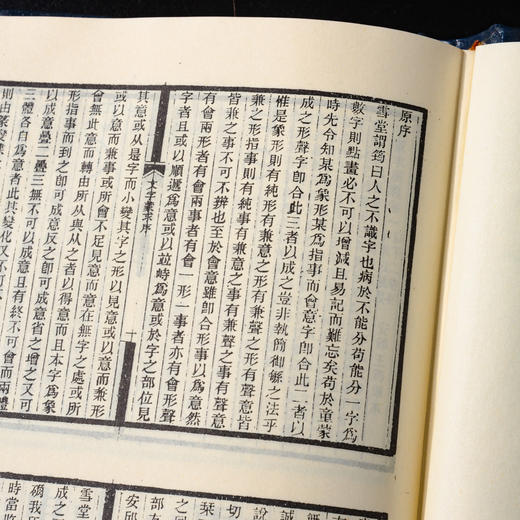 原序
雪堂謂筠曰人之不識字也病於不能分苟能分一字爲
數字則點畫必不可以增減且易記而難忘矣苟於童蒙
時先令知某爲象形某爲指事而會意字卽合此二者以
成之形聲字卽合此三者以成之豈非執簡御繇之法乎
惟是象形則有純形有兼意之形有兼聲之形有聲意皆
兼之形指事則有純事有兼意之事有兼聲之事有聲意
皆兼之事不可不辨也至於會意雖卽合形事以爲意然
有會兩形者有會兩事者有會一形一事者亦有會形聲
字者且或以順遞爲意或以並峙爲意或於字之部位見
文字蒙求序
一
其意或从是字而小變其字之形以見意或以意而兼形
或以意而兼事或所會不足見意而意在無字之處或所
會無此意而轉由所从與从之者以得意而且本字爲象
形指事而到之卽可成意反之卽可成意省之增之又可
以成意疊二疊三無不可以成意且有終不可會而兩體
三體各自爲意者此其變化又不可
則由篆變
切
說
栞
之回
部友
安邱
雪堂
成之
礪我
時當